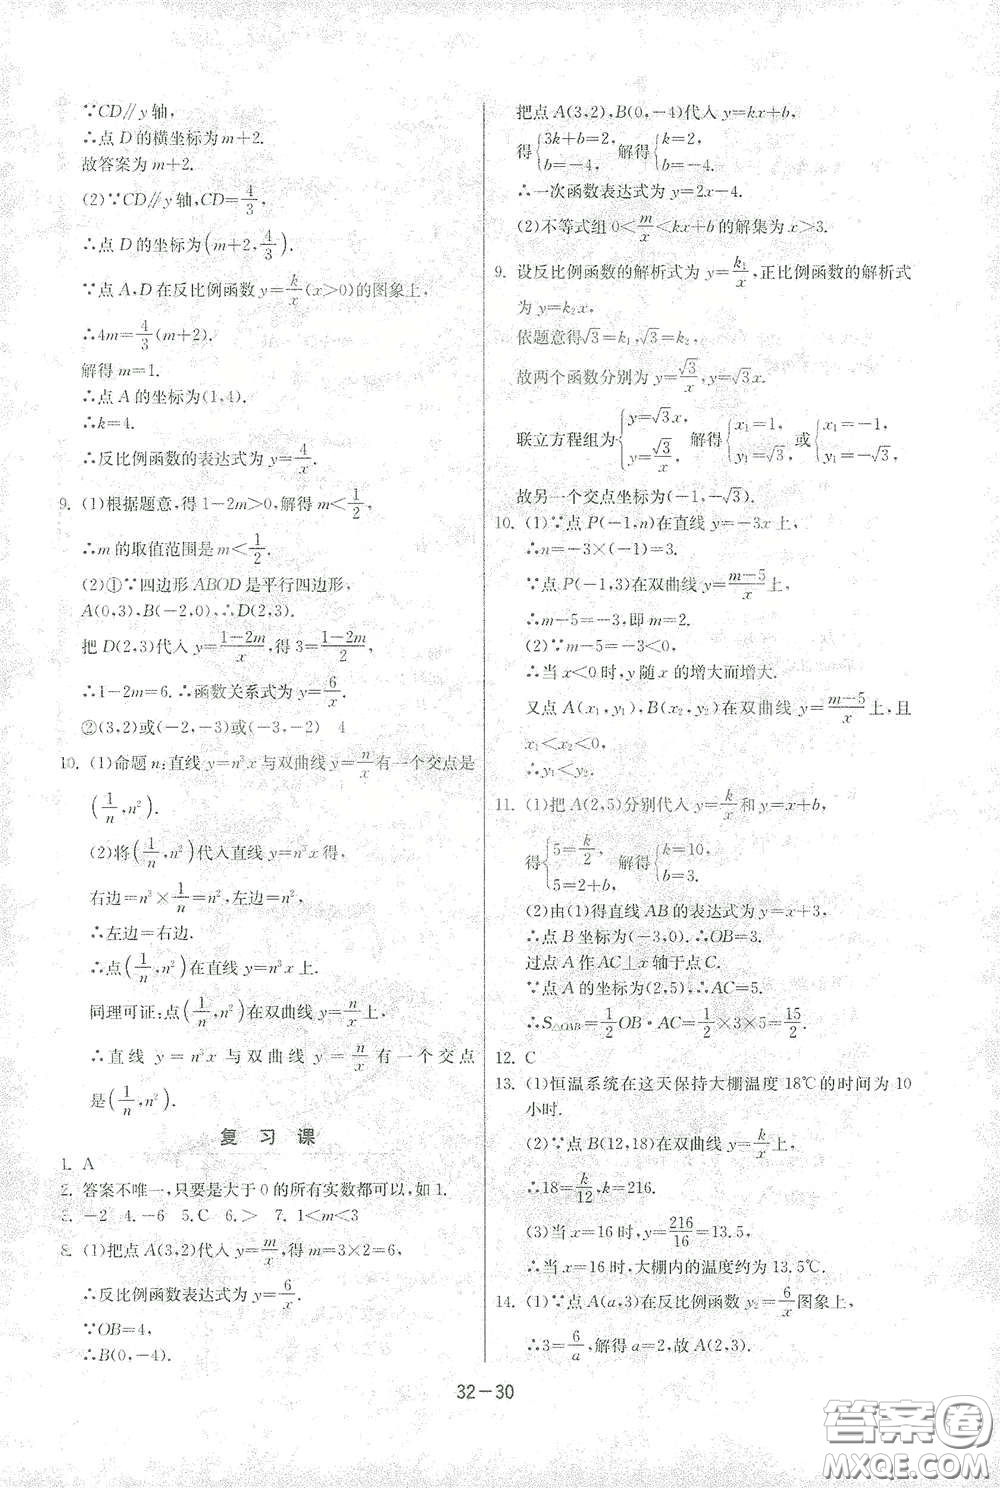 ∵CD∥y轴,
∴点D的横坐标为m+2.
故答案为m+2.
(2)∵CD∥y轴,CD=4/3,
∴点D的坐标为(m+2,4/3).
∵点A,D在反比例函数y=k/x(x>0)的图象上,
∴4m=4/3(m+2).
解得m=1.
∴点A的坐标为(1,4).
∴k=4.
∴反比例函数的表达式为y=4/x.
9. (1)根据题意,得1-2m>0,解得m<1/2,
∴m的取值范围是m<1/2.
(2)①∵四边形ABOD是平行四边形,
A(0,3),B(-2,0),∴D(2,3).
把D(2,3)代入y=(1-2m)/x,得3=(1-2m)/2,
∴1-2m=6.∴函数关系式为y=6/x.
②(3,2)或(-2,-3)或(-3,-2) 4
10. (1)命题n:直线y=n³x与双曲线y=n/x有一个交点是
(1/n,n²).
(2)将(1/n,n²)代入直线y=n³x得,
右边=n³×1/n=n²,左边=n²,
∴左边=右边.
∴点(1/n,n²)在直线y=n³x上.
同理可证:点(1/n,n²)在双曲线y=n/x上,
∴直线y=n³x与双曲线y=n/x有一个交点
是(1/n,n²).
复习课
1. A
2. 答案不唯一,只要是大于0的所有实数都可以,如1.
3. -2 4. -6 5. C 6. > 7. 1<m<3
8. (1)把点A(3,2)代入y=m/x,得m=3×2=6,
∴反比例函数表达式为y=6/x.
∵OB=4,
∴B(0,-4).
把点A(3,2),B(0,-4)代入y=kx+b,
得{3k+b=2, b=-4, 解得{k=2, b=-4.
∴一次函数表达式为y=2x-4.
(2)不等式组0<m/x<kx+b的解集为x>3.
9. 设反比例函数的解析式为y=k₁/x,正比例函数的解析式
为y=k₂x,
依题意得√3=k₁,√3=k₂,
故两个函数分别为y=√3/x,y=√3x.
联立方程组为{y=√3x, y=√3/x, 解得{x₁=1, y₁=√3, 或{x₁=-1, y₁=-√3.
故另一个交点坐标为(-1,-√3).
10. (1)∵点P(-1,n)在直线y=-3x上,
∴n=-3×(-1)=3.
∵点P(-1,3)在双曲线y=(m-5)/x上,
∴m-5=-3,即m=2.
(2)∵m-5=-3<0,
∴当x<0时,y随x的增大而增大.
又点A(x₁,y₁),B(x₂,y₂)在双曲线y=(m-5)/x上,且
x₁<x₂<0,
∴y₁<y₂.
11. (1)把A(2,5)分别代入y=k/x和y=x+b,
得{5=k/2, 5=2+b, 解得{k=10, b=3.
(2)由(1)得直线AB的表达式为y=x+3,
∴点B坐标为(-3,0).∴OB=3.
过点A作AC⊥x轴于点C.
∵点A的坐标为(2,5),∴AC=5.
∴S△OAB=1/2OB·AC=1/2×3×5=15/2.
12. C
13. (1)恒温系统在这天保持大棚温度18℃的时间为10
小时.
(2)∵点B(12,18)在双曲线y=k/x上,
∴18=k/12,k=216.
(3)当x=16时,y=216/16=13.5,
∴当x=16时,大棚内的温度约为13.5℃.
14. (1)∵点A(a,3)在反比例函数y₂=6/x图象上,
∴3=6/a,解得a=2,故A(2,3).
32-30
答案圈
MXQE.COM